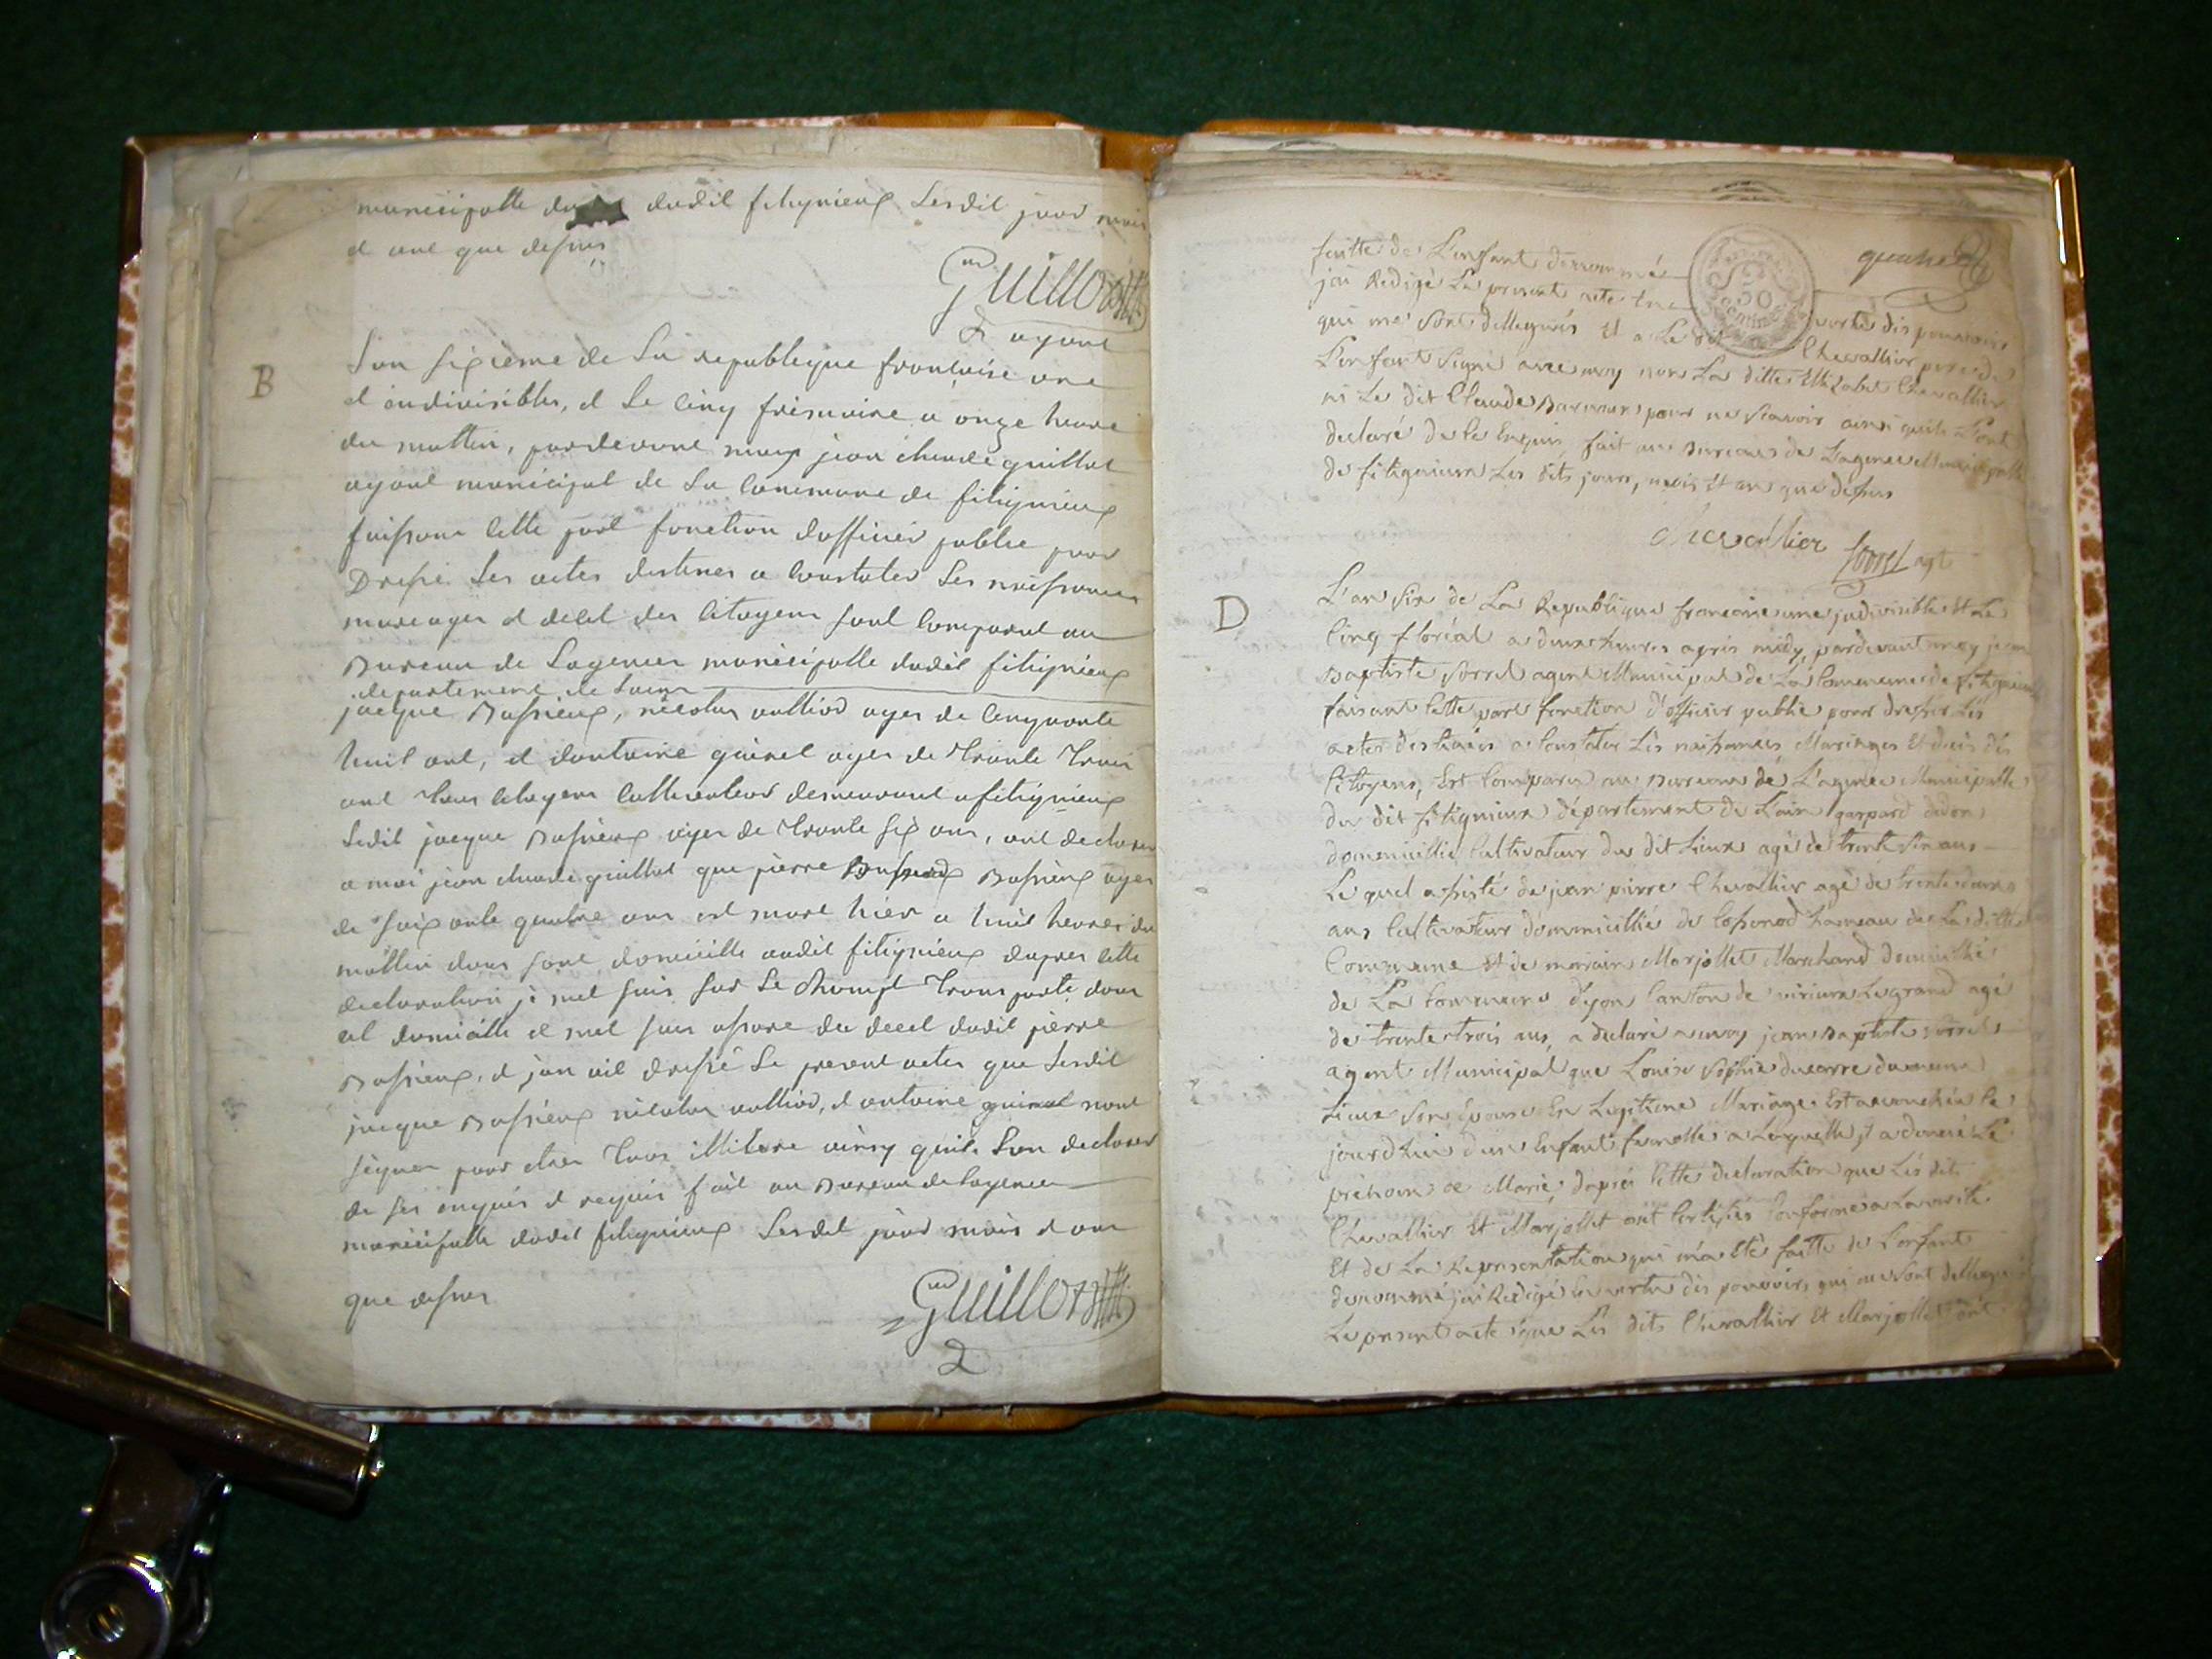 municipalle dudit fitignieux Lesdit jour mois
et ant que desus
Guillot
ayant
B
L'an sixieme de La republique françoise une
et indivisibles, et Le cinq frismaire a onze heure
du mattin, pardevant moy jean claude guillot
agant municipal de La commune de fitignieux
faissant cette part fonction dofficier public pour
Dressé Les actes destines a Constates Les naissances
mareages et decet des Citoyens sont Comparut au
Bureau de Lagences municipalle dudit fitignieux
departement de Lain
jacque Bussieux, nicolas aultiod ages de Cinquante
huit ant, et dantoine guinet ages de trante trois
ant tous Citoyens Cultivateur demeurant a fitignieux
Ledit jacque Bussieux ages de trante six ans, ont declares
a moi jean claude guillot que pierre Bussieux ages
de soix ante quatre ans est mort hier a huit heures du
mattin dans sont domicille audit fitignieux dapres cette
declaration je met suis sur Le Champt transporté dans
cet domicille et met suis assure du decet dudit pierre
Bussieux, et jan ait dressé Le present actes que Lesdit
jacque Bussieux nicolas aultiod, et antoine guinet nont
signer pour etres tous illitere ainsy quils Lon declares
de ses enquis et requis fait au Bureau de Lagences
municipalle dudit fitignieux Lesdit jour mois et ant
que desus
Guillot
2
quatre
faitte de L'enfant denommé
jai Redigé Le present acte En vertu dis pouvoirs
qui me sont dellegués Et a Le dit Chevallier pere de
L'enfant signé avec moy non La ditte Elizabet Chevallier
ni Le dit Claude pour ne scavoir ainsi quils Lont
declaré de Ce Enquis, fait au Bureau de L'agence Municipalle
de fitignieux Les dits jours, mois Et an que dessus
chevallier Sorrel agt
D
L'an six de La Republique francoise une jndivisible Et Le
Cinq floréal a deux heures apris midy, pardevant moy jean
Baptiste Sorrel agent Municipal de La Commune de fitignieux
faisant Cette part fonction d'officier public pour dresser Les
actes destinés a Constater Lés naissances Mariages Et decis dés
Citoyens, Est Comparu au Burreau de L'agence Municipalle
du dit fitignieux département de L'ain gaspard didon
dommicillié Cultivateur du dit Lieux agé de trente six ans
Le quel assisté de jean pierre Chevallier agé de trente deux
ans Cultivateur dommicillié de Cossonod hameau de La ditte
Commune Et de Marjollet Marchand Domicillié
de La Commune d'yon Canton de virieux Le grand agé
de trente trois ans, a déclaré a moy jean Baptiste Sorrel
agent Municipal que Louise Sophie ducarre du meme
Lieux Son Épouse En Legitime Mariage Est accouchée Ce
jourd'hui d'un Enfant femelle a Laquelle jl a donné Le
prénom de Marie; d'aprés Cette declaration que Lés dits
Chevallier Et Marjollet ont Certifiés Conforme a La verité
Et de La Representation qui m'a Eté faitte de L'enfant
denommé j'ai Redigé En vertu dis pouvoirs qui me Sont dellegués
Le present acte que Lés dits Chevallier Et Marjollet ont